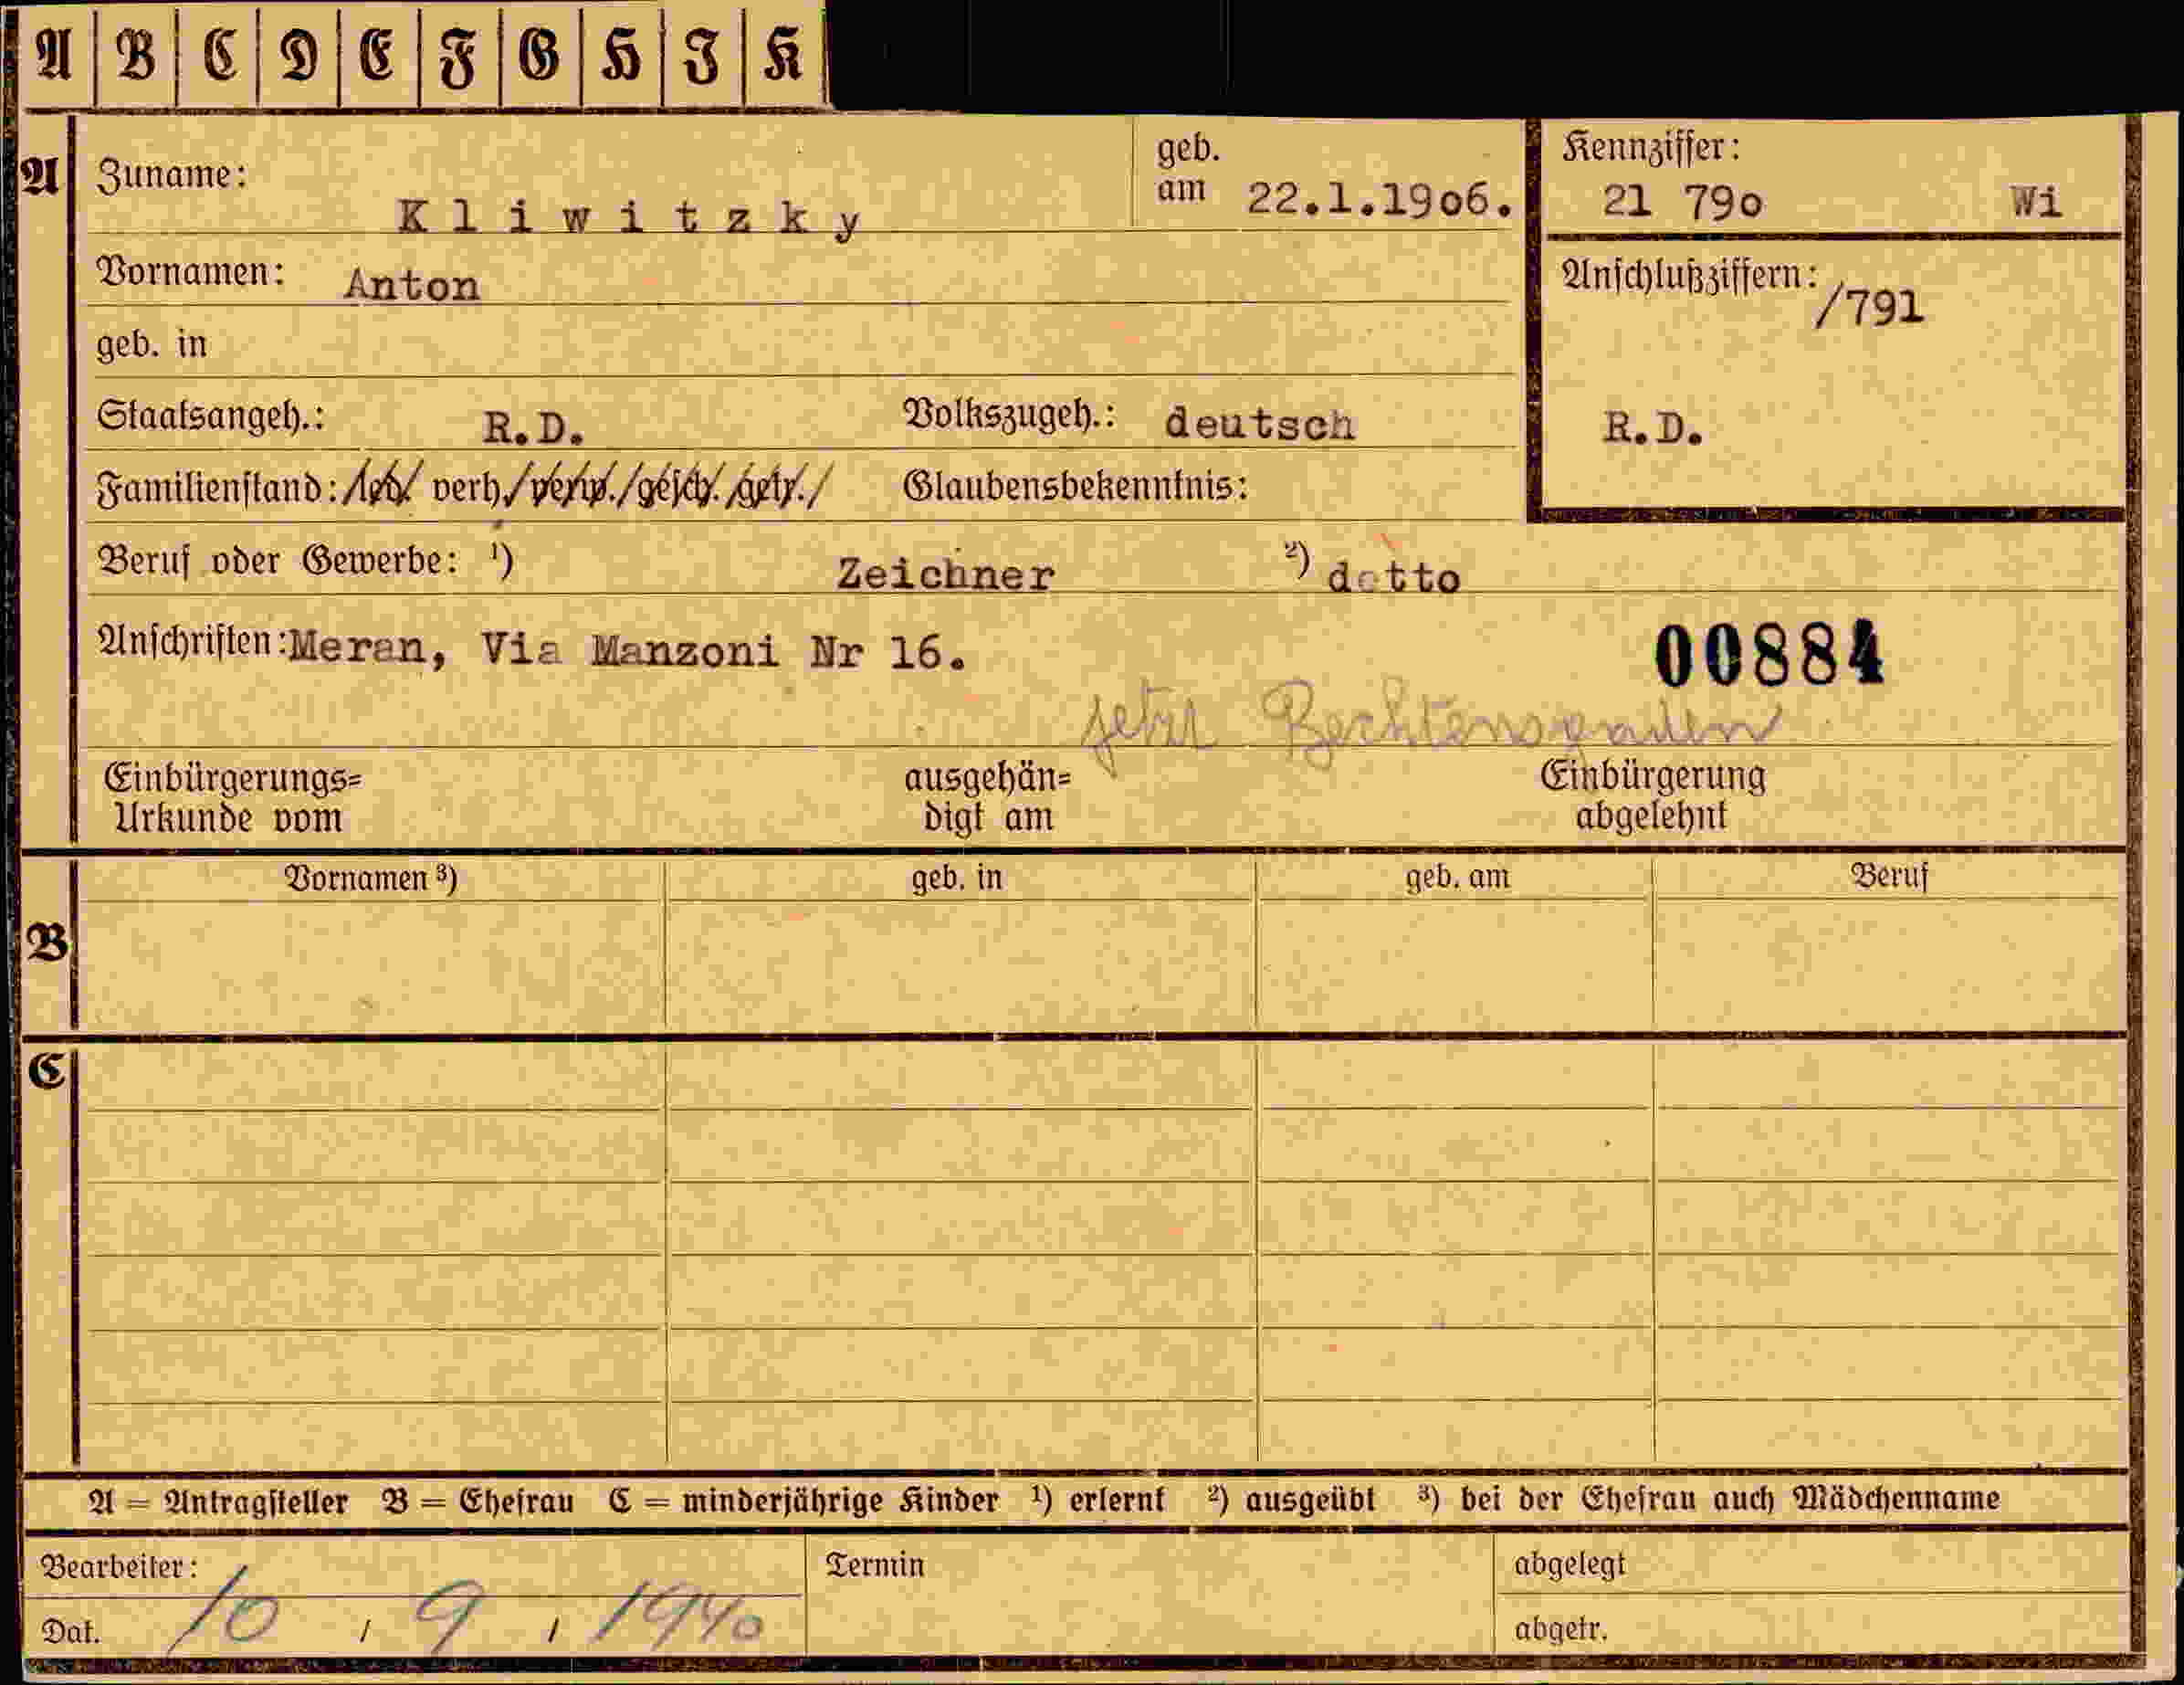 A B C D E F G H I K
A Zuname: K l i w i t z k y geb. am 22.1.19o6.
Kennziffer: 21 79o Wi
Vornamen: Anton
Anschlußziffern: /791
geb. in
Staatsangeh.: R.D. Volkszugeh.: deutsch
R.D.
Familienstand: /led/ verh./verw./gesch./getr./ Glaubensbekenntnis:
Beruf oder Gewerbe: ¹) Zeichner ²) detto
Anschriften: Meran, Via Manzoni Nr 16.
00884
jetzt
Einbürgerungs= Urkunde vom ausgehän= digt am Einbürgerung abgelehnt
Vornamen ³) geb. in geb. am Beruf
B
C
A = Antragsteller B = Ehefrau C = minderjährige Kinder ¹) erlernt ²) ausgeübt ³) bei der Ehefrau auch Mädchenname
Bearbeiter: Termin abgelegt
Dat. 10 / 9 / 1940 abgetr.